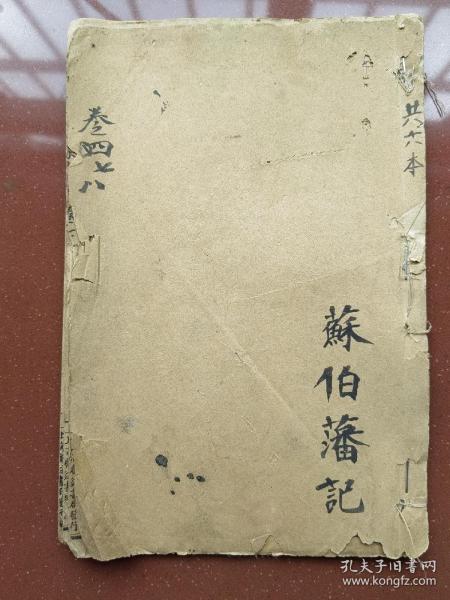 共六本
蘇伯藩記
卷四七八
孔夫子旧书网
www.kongfz.com